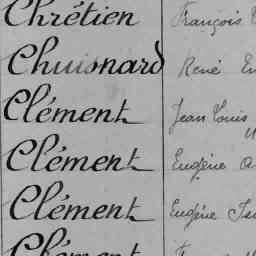 Chrétien François
Chuisnard René
Clément Jean Louis
Clément Eugène
Clément Eugénie
Clément